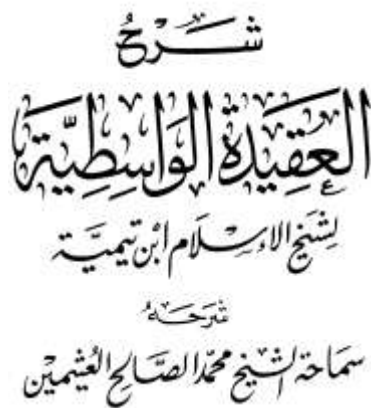 شرح
العقيدة الواسطية
لشيخ الإسلام ابن تيمية
شرحه
سماحة الشيخ محمد الصالح العثيمين